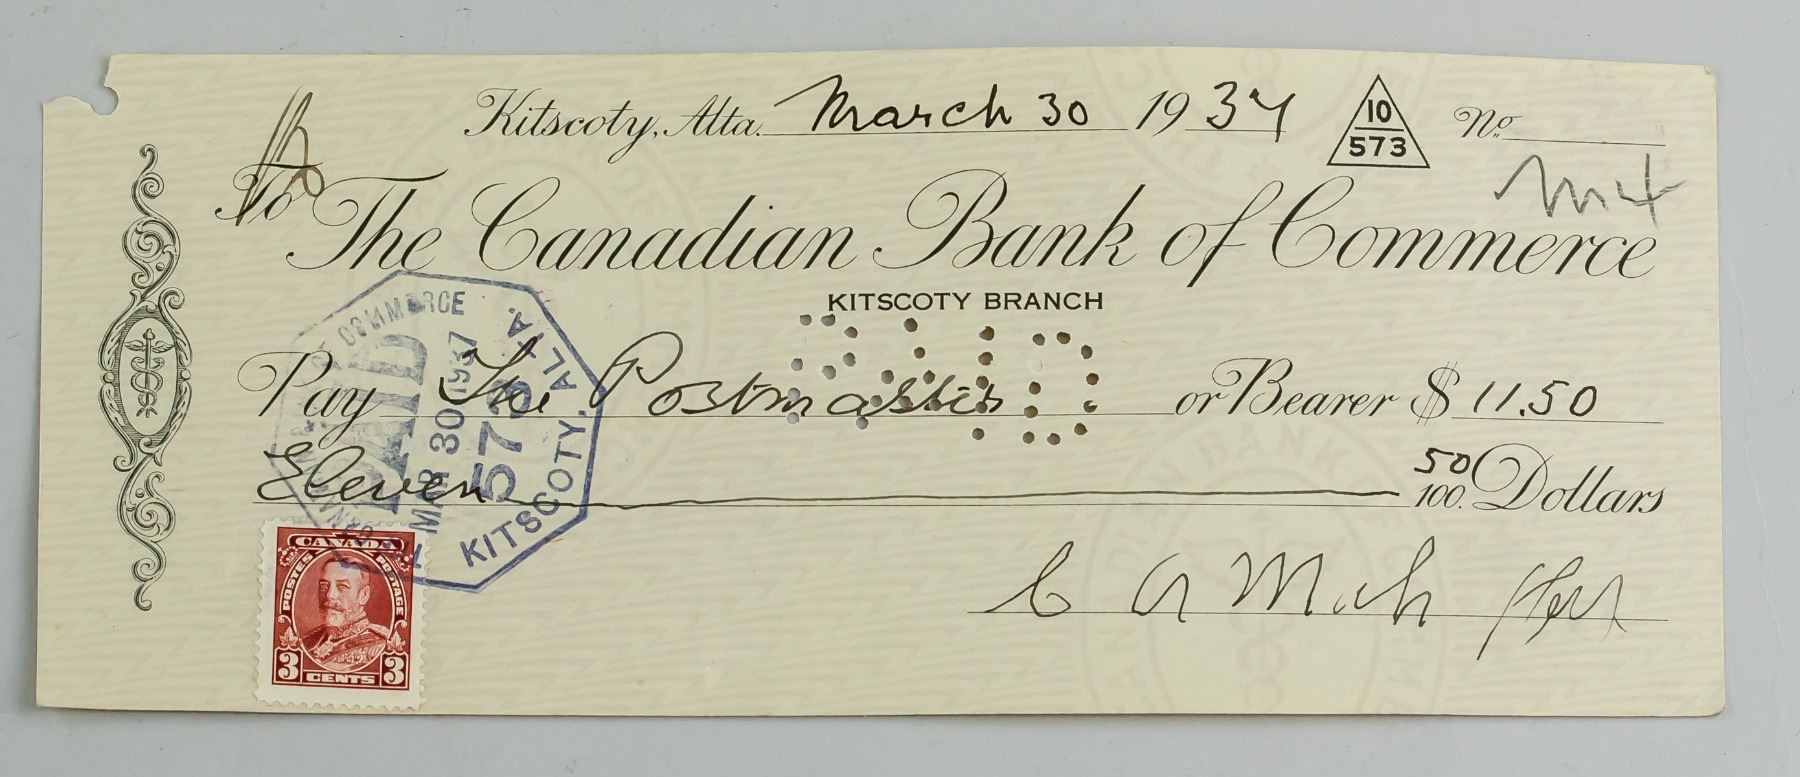 Kitscoty, Alta. March 30 1937
10
573
No.
To
The Canadian Bank of Commerce
KITSCOTY BRANCH
Pay The Postmaster or Bearer $ 11.50
Eleven 50/100. Dollars
COMMERCE
PAID
MAR 30 1937
573
KITSCOTY, ALTA.
PAID
CANADA
POSTES POSTAGE
3 CENTS 3
C A